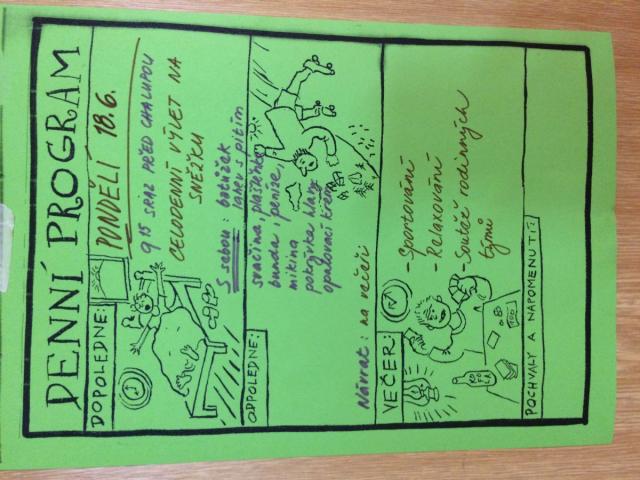 DENNÍ PROGRAM
DOPOLEDNE:
PONDĚLÍ 18.6.
9 15 SRAZ PŘED CHALUPOU
CELODENNÍ VÝLET NA
SNĚŽKU
S sebou: batůžek
lahev s pitím
svačina, pláštěnka
bunda, peníze,
mikina
pokrývka hlavy
opalovací krém
ODPOLEDNE:
Návrat: na večeři
VEČER:
- Sportování
- Relaxování
- Soutěž rodinných
týmů
POCHVALY A NAPOMENUTÍ: